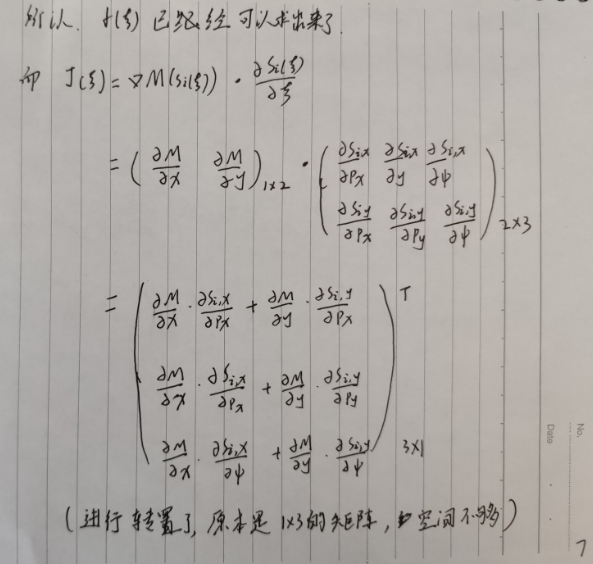 所以. f(ξ) 已经 可以求出来了.
而 J(ξ) = ∇M(Si(ξ)) · ∂Si(ξ)/∂ξ
= ( ∂M/∂x ∂M/∂y )1×2 · ( ∂Si,x/∂Px ∂Si,x/∂y ∂Si,x/∂ψ
∂Si,y/∂Px ∂Si,y/∂Py ∂Si,y/∂ψ )2×3
= ( ∂M/∂x · ∂Si,x/∂Px + ∂M/∂y · ∂Si,y/∂Px
∂M/∂x · ∂Si,x/∂Px + ∂M/∂y · ∂Si,y/∂Py
∂M/∂x · ∂Si,x/∂ψ + ∂M/∂y · ∂Si,y/∂ψ )T 3×1
(进行转置了, 原本是 1×3的矩阵, 空间不够)
No.
Date
7